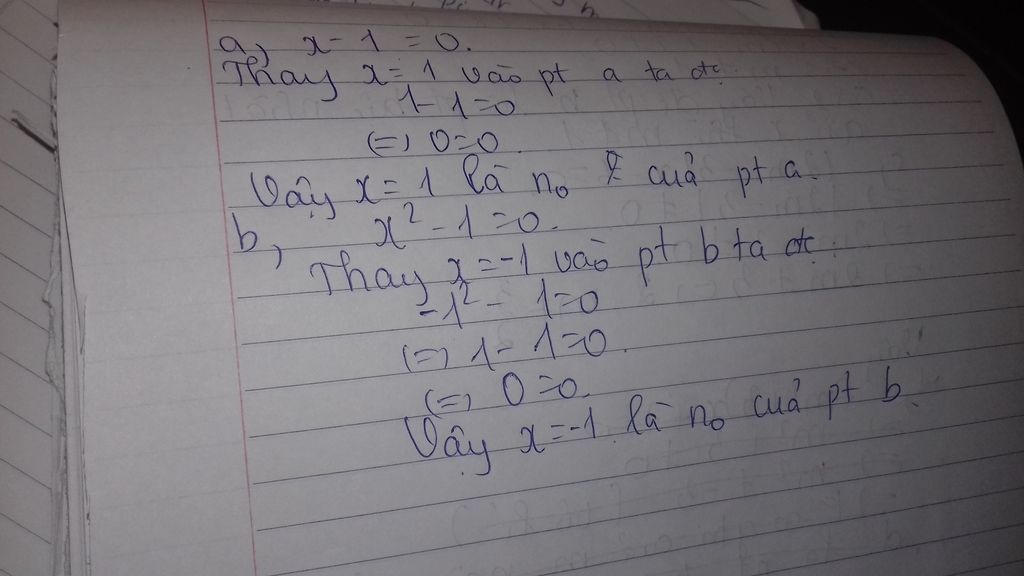 a, x - 1 = 0.
Thay x = 1 vào pt a ta đc:
1 - 1 = 0
(=) 0 = 0.
Vậy x = 1 là no của pt a.
b, x² - 1 = 0.
Thay x = -1 vào pt b ta đc:
-1² - 1 = 0
(=) 1 - 1 = 0.
(=) 0 = 0.
Vậy x = -1 là no của pt b.